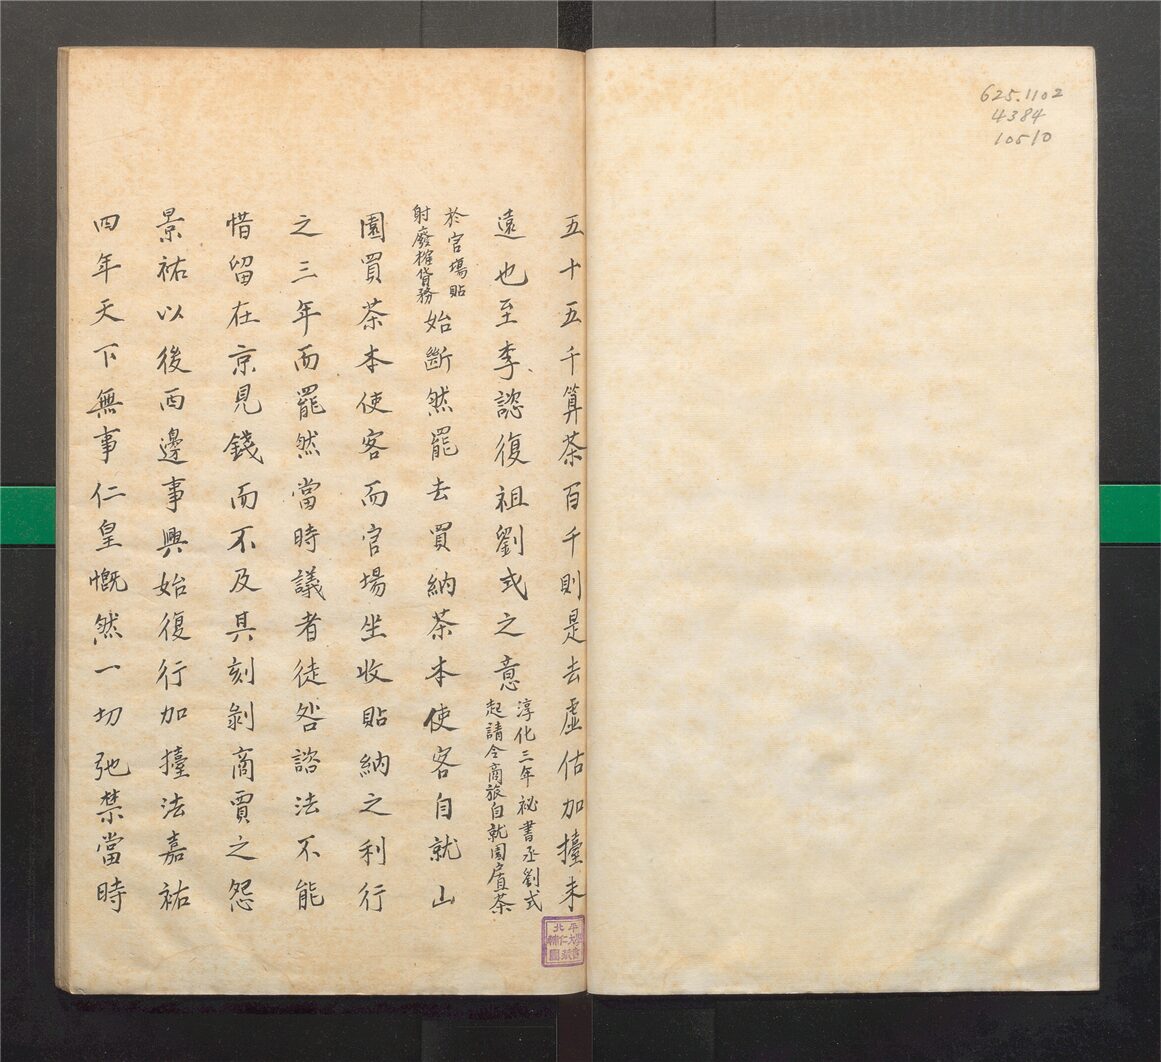 625.1102
4384
10510
五十五千算茶百千則是去虛估加擡未
遠也至李諮復祖劉式之意淳化三年祕書丞劉式
起請令商旅自就園置茶
於官塲貼
射廢榷貨務始斷然罷去買納茶本使客自就山
園買茶本使客而官場坐收貼納之利行
之三年而罷然當時議者徒咎諮法不能
惜留在京見錢而不及其刻剝商賈之怨
景祐以後西邊事興始復行加擡法嘉祐
四年天下無事仁皇慨然一切弛禁當時
北平
輔仁大學